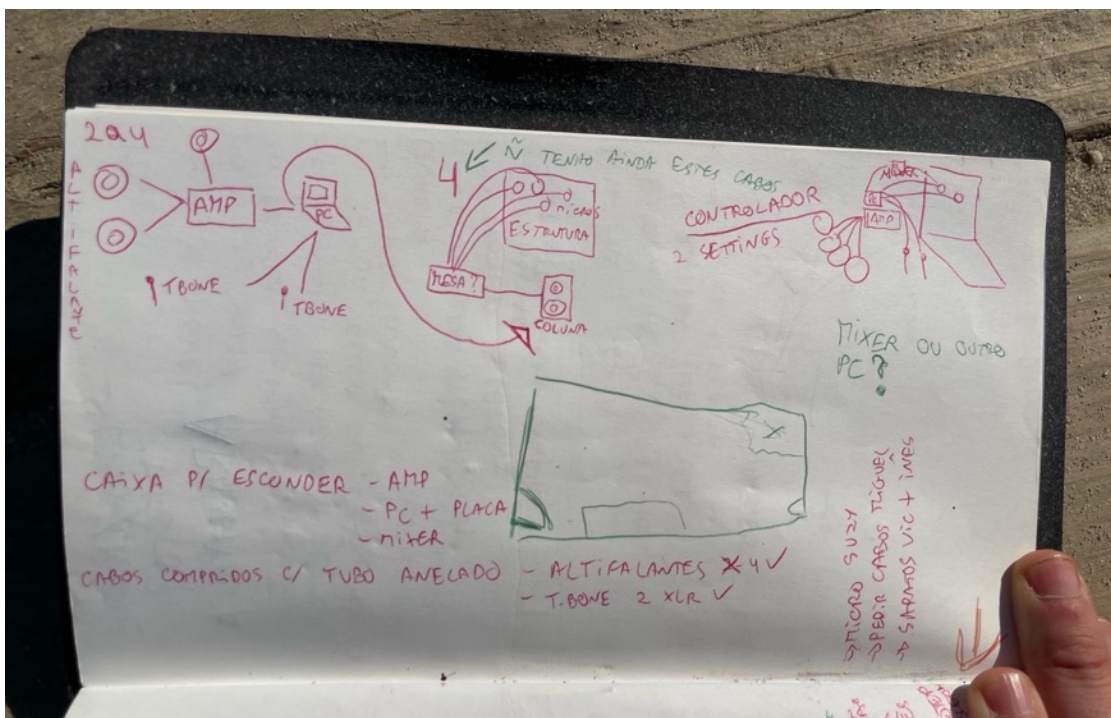 2 a 4
ALTIFALANTE
AMP
PC
TBONE
TBONE
4
Ñ TENHO AINDA ESTES CABOS
MICROS
ESTRUTURA
MESA?
COLUNA
CONTROLADOR
2 SETTINGS
MIXER
PC
AMP
MIXER OU OUTRO
PC?
X
CAIXA P/ ESCONDER - AMP
- PC + PLACA
- MIXER
CABOS COMPRIDOS C/ TUBO ANELADO - ALTIFALANTES X 4 ✓
- T.BONE 2 XLR ✓
→ MICRO SUZY
→ PEDIR CABOS MIGUEL
→ SAPATOS VIC + IÑES